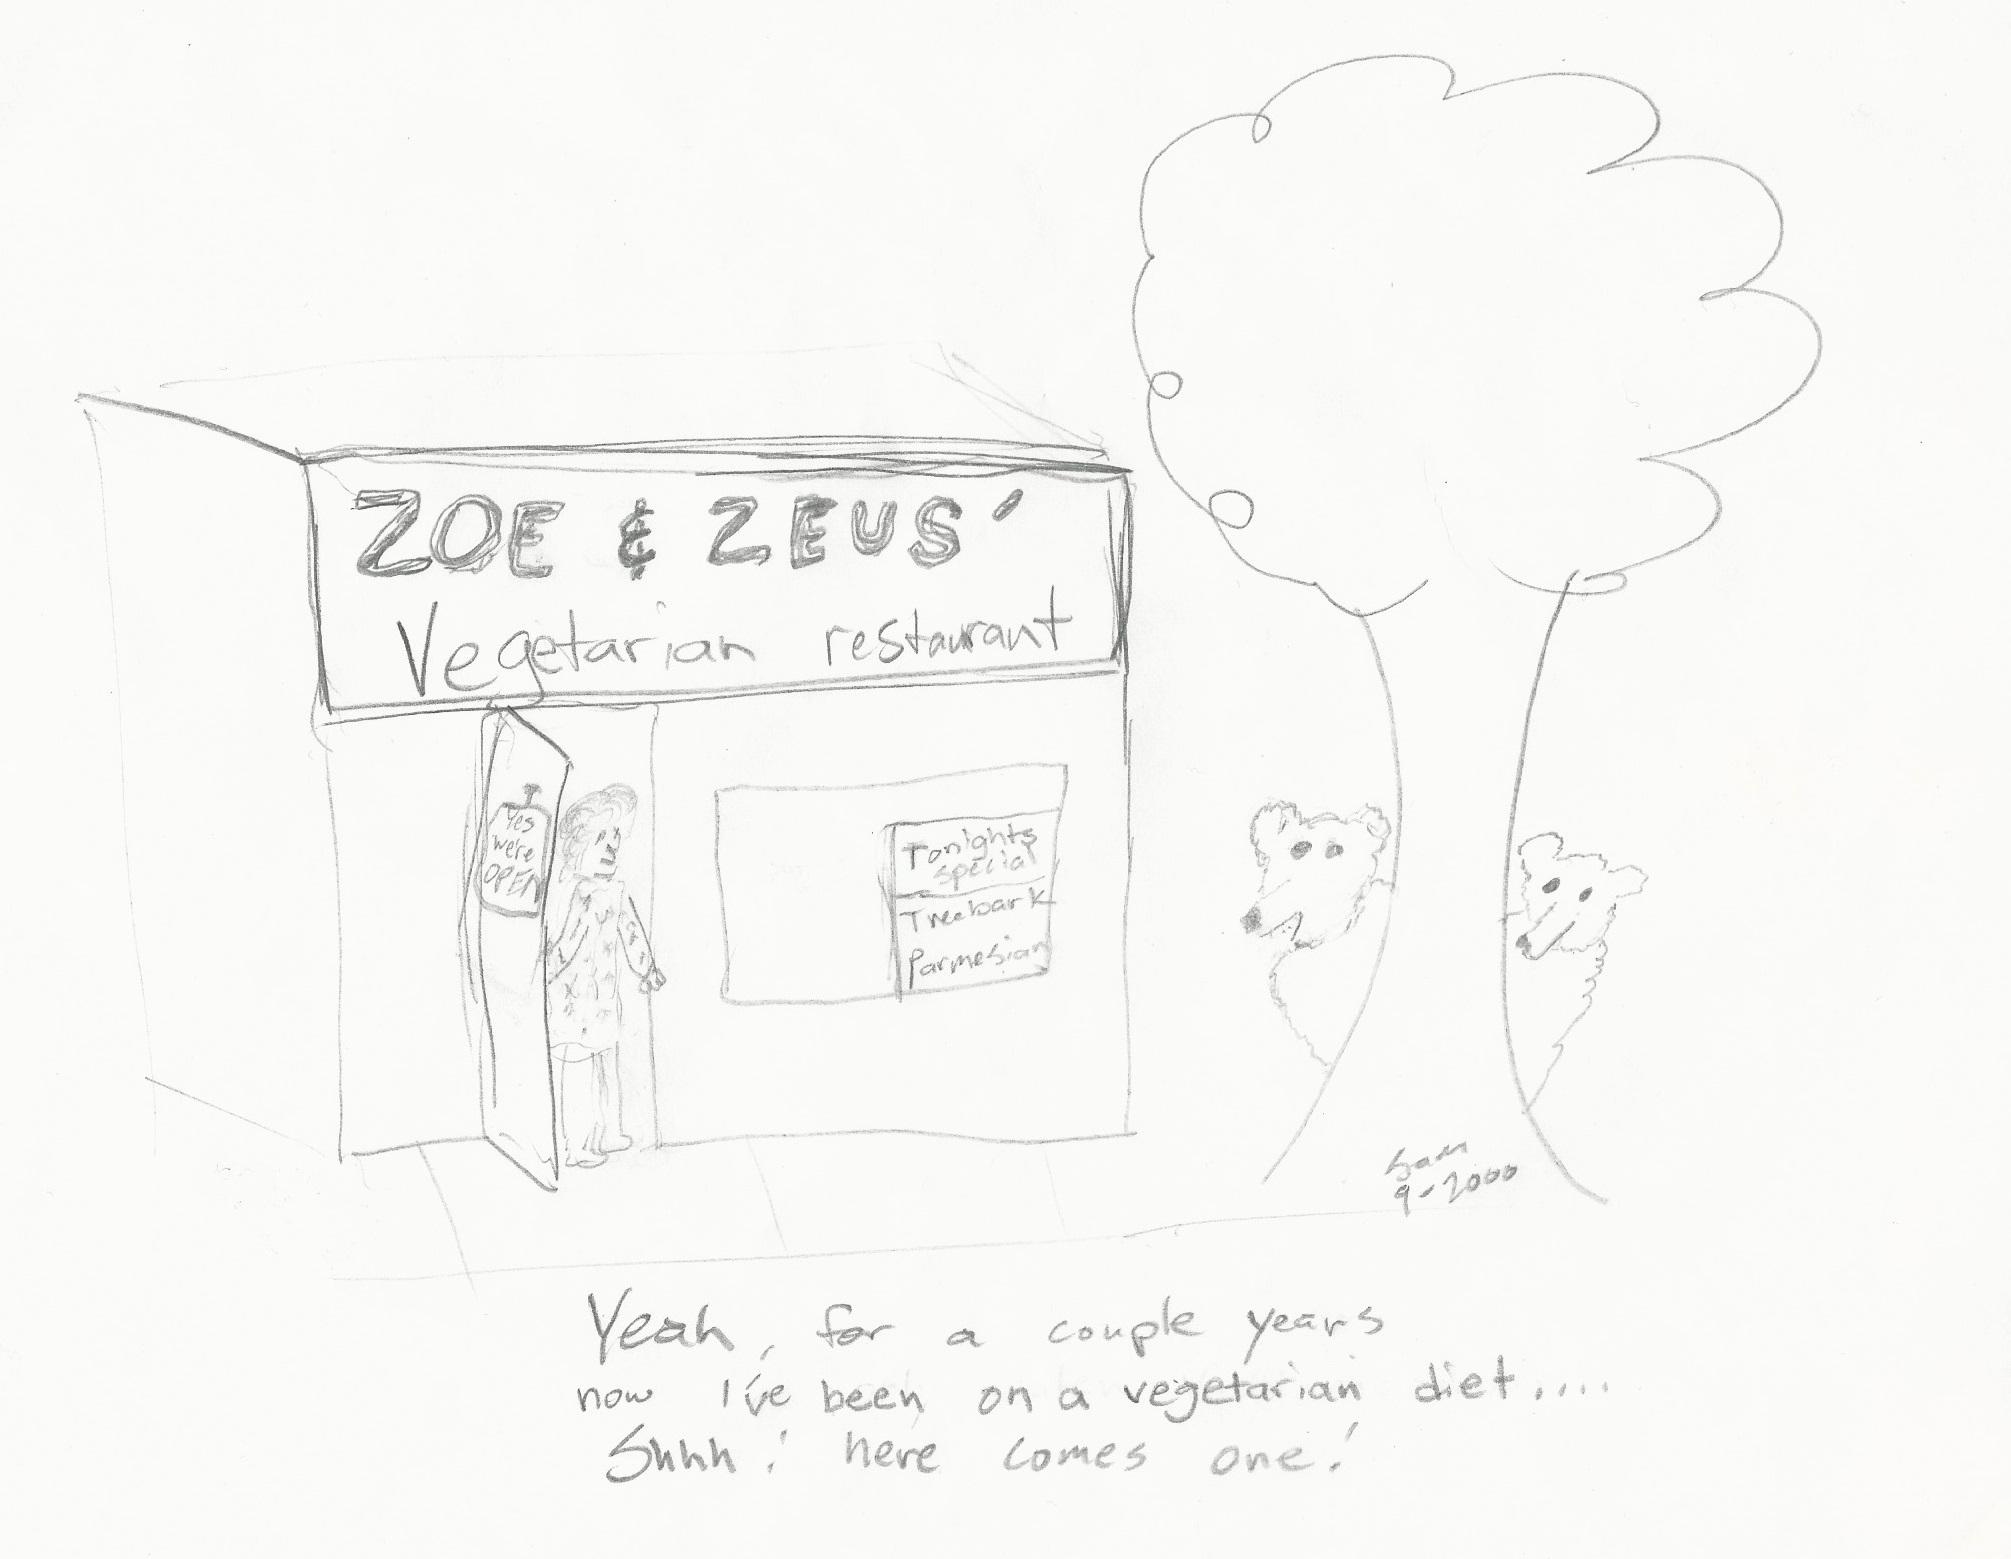 ZOE & ZEUS'
Vegetarian restaurant
Yes
we're
OPEN
Tonights
special
Treebark
Parmesian
Sam
9-2000
Yeah, for a couple years
now I've been on a vegetarian diet....
Shhh! here comes one!